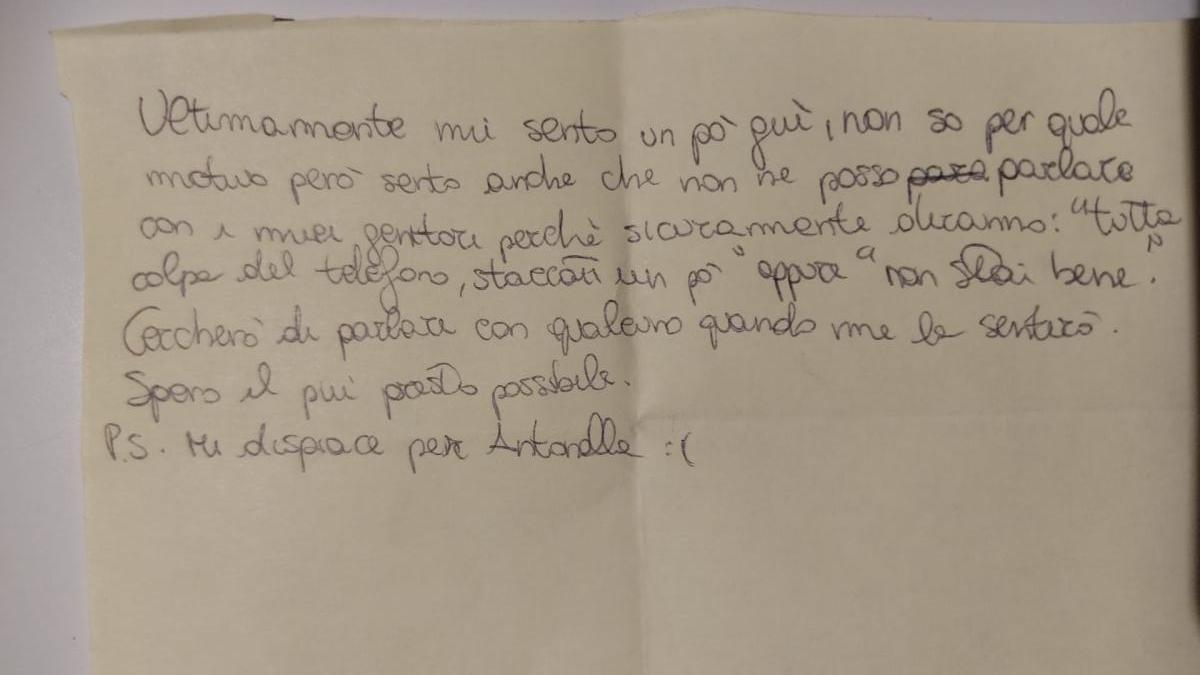 Ultimamente mi sento un pò giù, non so per quale
motivo però sento anche che non ne posso para parlare
con i miei genitori perchè sicuramente diranno: "tutta
colpa del telefono, staccati un pò" oppure "non stai bene".
Cercherò di parlare con qualcuno quando me la sentirò.
Spero il più presto possibile.
P.S. Mi dispiace per Antonella :(